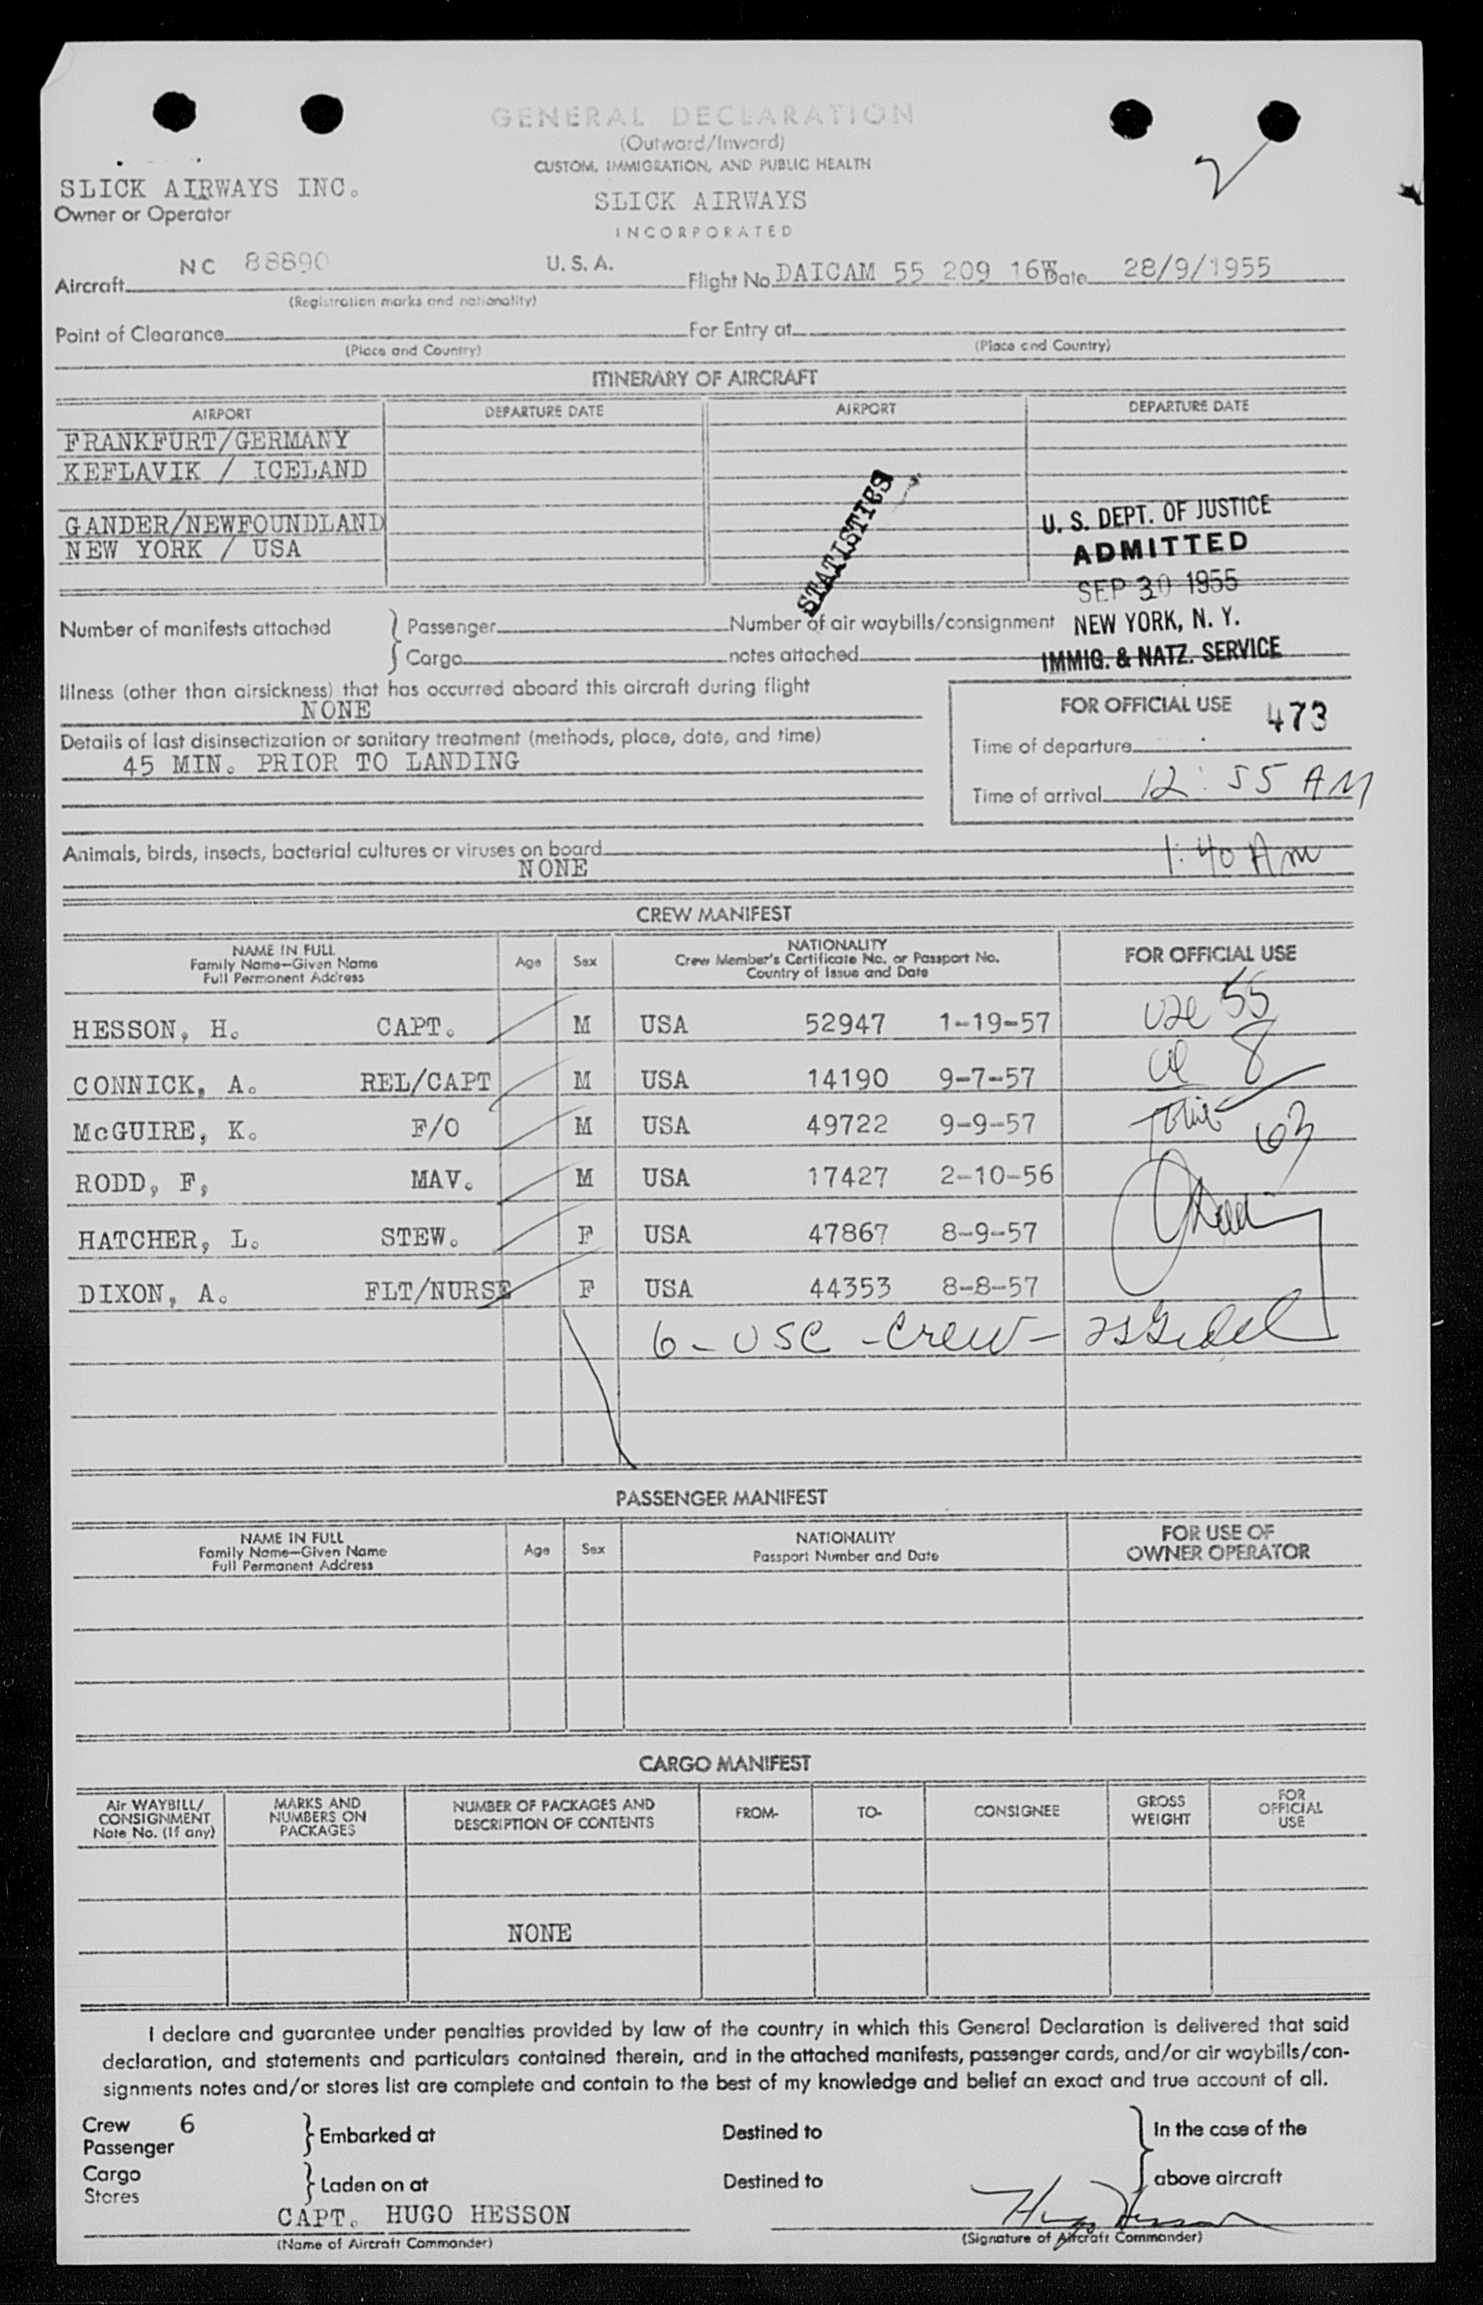 GENERAL DECLARATION
(Outward/Inward)
CUSTOM, IMMIGRATION, AND PUBLIC HEALTH
2
SLICK AIRWAYS INC.
Owner or Operator
SLICK AIRWAYS
INCORPORATED
Aircraft NC 88890 U. S. A. Flight No. DAICAM 55 209 16W Date 28/9/1955
(Registration marks and nationality)
Point of Clearance For Entry at
(Place and Country) (Place and Country)
ITINERARY OF AIRCRAFT
AIRPORT DEPARTURE DATE AIRPORT DEPARTURE DATE
FRANKFURT/GERMANY
KEFLAVIK / ICELAND
GANDER/NEWFOUNDLAND
NEW YORK / USA
STATISTICS
U. S. DEPT. OF JUSTICE
ADMITTED
SEP 30 1955
NEW YORK, N. Y.
IMMIG. & NATZ. SERVICE
Number of manifests attached } Passenger Number of air waybills/consignment
Cargo notes attached
Illness (other than airsickness) that has occurred aboard this aircraft during flight
NONE
Details of last disinsectization or sanitary treatment (methods, place, date, and time)
45 MIN. PRIOR TO LANDING
FOR OFFICIAL USE 473
Time of departure
Time of arrival 12:55 AM
Animals, birds, insects, bacterial cultures or viruses on board 1:40 Am
NONE
CREW MANIFEST
NAME IN FULL
Family Name—Given Name
Full Permanent Address
Age Sex
NATIONALITY
Crew Member's Certificate No. or Passport No.
Country of Issue and Date
FOR OFFICIAL USE
HESSON, H. CAPT. M USA 52947 1-19-57 55
CONNICK, A. REL/CAPT M USA 14190 9-7-57 8
McGUIRE, K. F/O M USA 49722 9-9-57 63
RODD, F, MAV. M USA 17427 2-10-56
HATCHER, L. STEW. F USA 47867 8-9-57
DIXON, A. FLT/NURSE F USA 44353 8-8-57
6 - USC - Crew -
PASSENGER MANIFEST
NAME IN FULL
Family Name—Given Name
Full Permanent Address
Age Sex
NATIONALITY
Passport Number and Date
FOR USE OF
OWNER OPERATOR
CARGO MANIFEST
Air WAYBILL/
CONSIGNMENT
Note No. (If any)
MARKS AND
NUMBERS ON
PACKAGES
NUMBER OF PACKAGES AND
DESCRIPTION OF CONTENTS
FROM- TO- CONSIGNEE
GROSS
WEIGHT
FOR
OFFICIAL
USE
NONE
I declare and guarantee under penalties provided by law of the country in which this General Declaration is delivered that said
declaration, and statements and particulars contained therein, and in the attached manifests, passenger cards, and/or air waybills/con-
signments notes and/or stores list are complete and contain to the best of my knowledge and belief an exact and true account of all.
Crew 6
Passenger } Embarked at Destined to } In the case of the
Cargo
Stores } Laden on at Destined to above aircraft
CAPT. HUGO HESSON Hugo Hesson
(Name of Aircraft Commander) (Signature of Aircraft Commander)